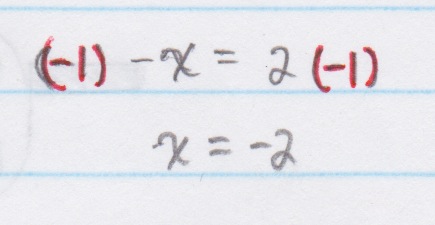 (-1) -x = 2 (-1)
x = -2